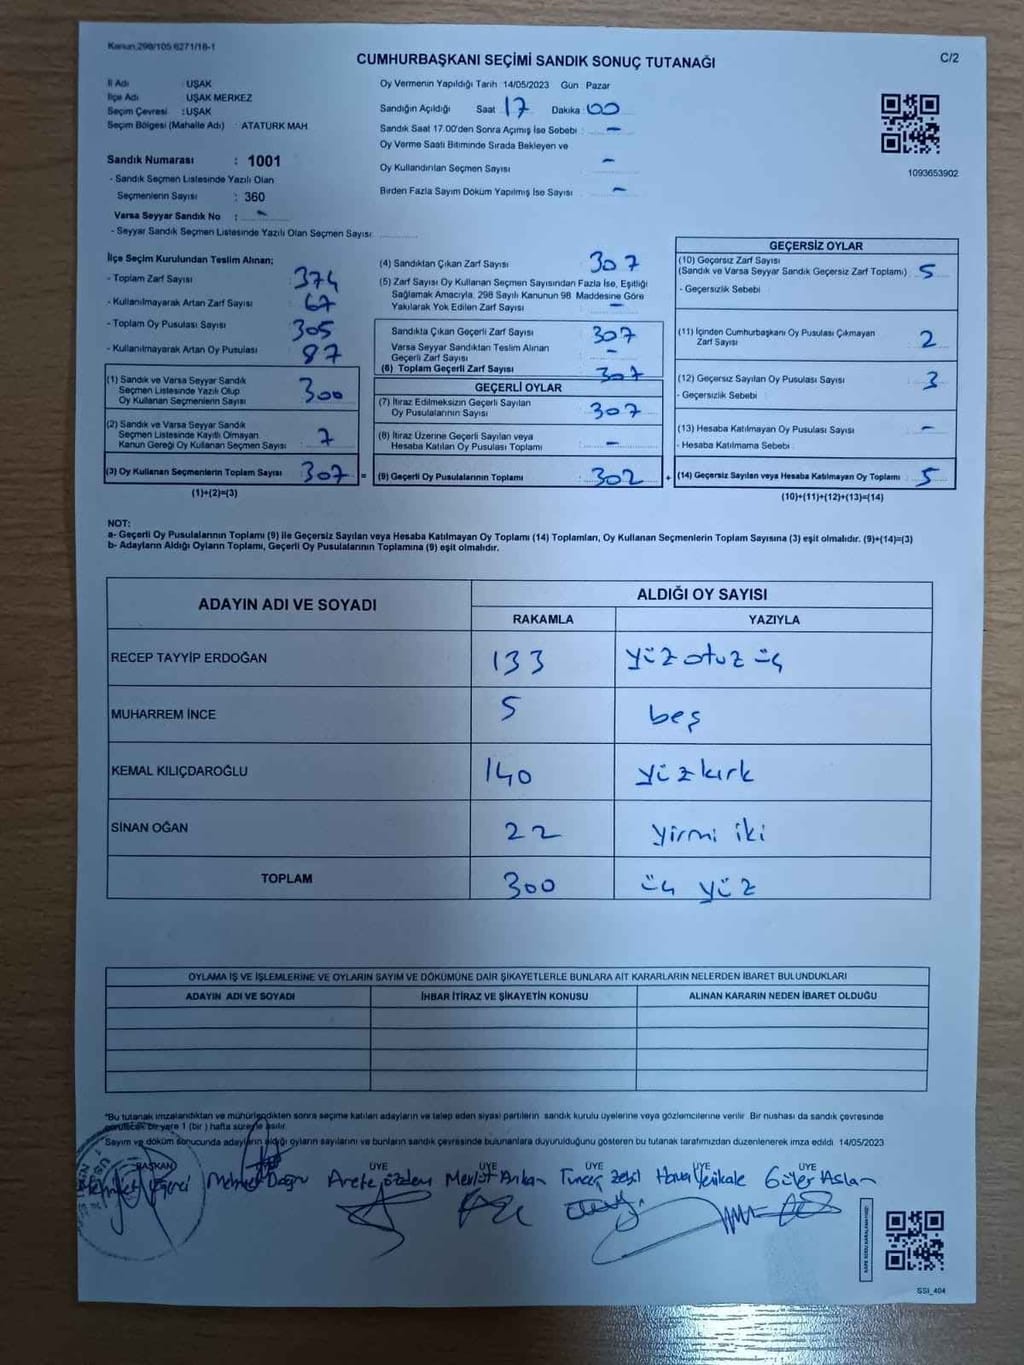 Kanun.298/105.6271/18-1
CUMHURBAŞKANI SEÇİMİ SANDIK SONUÇ TUTANAĞI
C/2
İl Adı : UŞAK
İlçe Adı : UŞAK MERKEZ
Seçim Çevresi : UŞAK
Seçim Bölgesi (Mahalle Adı) : ATATÜRK MAH
Sandık Numarası : 1001
- Sandık Seçmen Listesinde Yazılı Olan
Seçmenlerin Sayısı : 360
Varsa Seyyar Sandık No : -
- Seyyar Sandık Seçmen Listesinde Yazılı Olan Seçmen Sayısı:
Oy Vermenin Yapıldığı Tarih 14/05/2023 Gün Pazar
Sandığın Açıldığı Saat 17 Dakika 00
Sandık Saat 17.00'den Sonra Açımış İse Sebebi : -
Oy Verme Saati Bitiminde Sırada Bekleyen ve
Oy Kullandırılan Seçmen Sayısı -
Birden Fazla Sayım Döküm Yapılmış İse Sayısı -
1093653902
İlçe Seçim Kurulundan Teslim Alınan;
- Toplam Zarf Sayısı : 374
- Kullanılmayarak Artan Zarf Sayısı : 67
- Toplam Oy Pusulası Sayısı : 305
- Kullanılmayarak Artan Oy Pusulası : 87
(1) Sandık ve Varsa Seyyar Sandık
Seçmen Listesinde Yazılı Olup
Oy Kullanan Seçmenlerin Sayısı : 300
(2) Sandık ve Varsa Seyyar Sandık
Seçmen Listesinde Kayıtlı Olmayan
Kanun Gereği Oy Kullanan Seçmen Sayısı : 7
(3) Oy Kullanan Seçmenlerin Toplam Sayısı : 307 =
(1)+(2)=(3)
(4) Sandıktan Çıkan Zarf Sayısı : 307
(5) Zarf Sayısı Oy Kullanan Seçmen Sayısından Fazla İse, Eşitliği
Sağlamak Amacıyla, 298 Sayılı Kanunun 98. Maddesine Göre
Yakılarak Yok Edilen Zarf Sayısı : -
Sandıkta Çıkan Geçerli Zarf Sayısı : 307
Varsa Seyyar Sandıktan Teslim Alınan
Geçerli Zarf Sayısı : -
(6) Toplam Geçerli Zarf Sayısı : 307
GEÇERLİ OYLAR
(7) İtiraz Edilmeksizin Geçerli Sayılan
Oy Pusulalarının Sayısı : 307
(8) İtiraz Üzerine Geçerli Sayılan veya
Hesaba Katılan Oy Pusulası Toplamı : -
(9) Geçerli Oy Pusulalarının Toplamı : 302 +
GEÇERSİZ OYLAR
(10) Geçersiz Zarf Sayısı
(Sandık ve Varsa Seyyar Sandık Geçersiz Zarf Toplamı) : 5
- Geçersizlik Sebebi :
(11) İçinden Cumhurbaşkanı Oy Pusulası Çıkmayan
Zarf Sayısı : 2
(12) Geçersiz Sayılan Oy Pusulası Sayısı : 3
- Geçersizlik Sebebi :
(13) Hesaba Katılmayan Oy Pusulası Sayısı : -
- Hesaba Katılmama Sebebi :
(14) Geçersiz Sayılan veya Hesaba Katılmayan Oy Toplamı : 5
(10)+(11)+(12)+(13)=(14)
NOT:
a- Geçerli Oy Pusulalarının Toplamı (9) ile Geçersiz Sayılan veya Hesaba Katılmayan Oy Toplamı (14) Toplamları, Oy Kullanan Seçmenlerin Toplam Sayısına (3) eşit olmalıdır. (9)+(14)=(3)
b- Adayların Aldığı Oyların Toplamı, Geçerli Oy Pusulalarının Toplamına (9) eşit olmalıdır.
ADAYIN ADI VE SOYADI ALDIĞI OY SAYISI
RAKAMLA YAZIYLA
RECEP TAYYİP ERDOĞAN 133 yüz otuz üç
MUHARREM İNCE 5 beş
KEMAL KILIÇDAROĞLU 140 yüzkırk
SİNAN OĞAN 22 yirmi iki
TOPLAM 300 üç yüz
OYLAMA İŞ VE İŞLEMLERİNE VE OYLARIN SAYIM VE DÖKÜMÜNE DAİR ŞİKAYETLERLE BUNLARA AİT KARARLARIN NELERDEN İBARET BULUNDUKLARI
ADAYIN ADI VE SOYADI İHBAR İTİRAZ VE ŞİKAYETİN KONUSU ALINAN KARARIN NEDEN İBARET OLDUĞU
*Bu tutanak imzalandıktan ve mühürlendikten sonra seçime katılan adayların ve talep eden siyasi partilerin sandık kurulu üyelerine veya gözlemcilerine verilir. Bir nüshası da sandık çevresinde
görülecek bir yere 1 (bir) hafta süreyle asılır.
*Sayım ve döküm sonucunda adayların aldığı oyların sayılarını ve bunların sandık çevresinde bulunanlara duyurulduğunu gösteren bu tutanak tarafımızdan düzenlenerek imza edildi. 14/05/2023
BAŞKAN ÜYE ÜYE ÜYE ÜYE ÜYE
Mehmet Doğru Arefe Özdem Mevlüt Arıkan Tuncay Hava Yenikale Güler Aslan
SSI_404